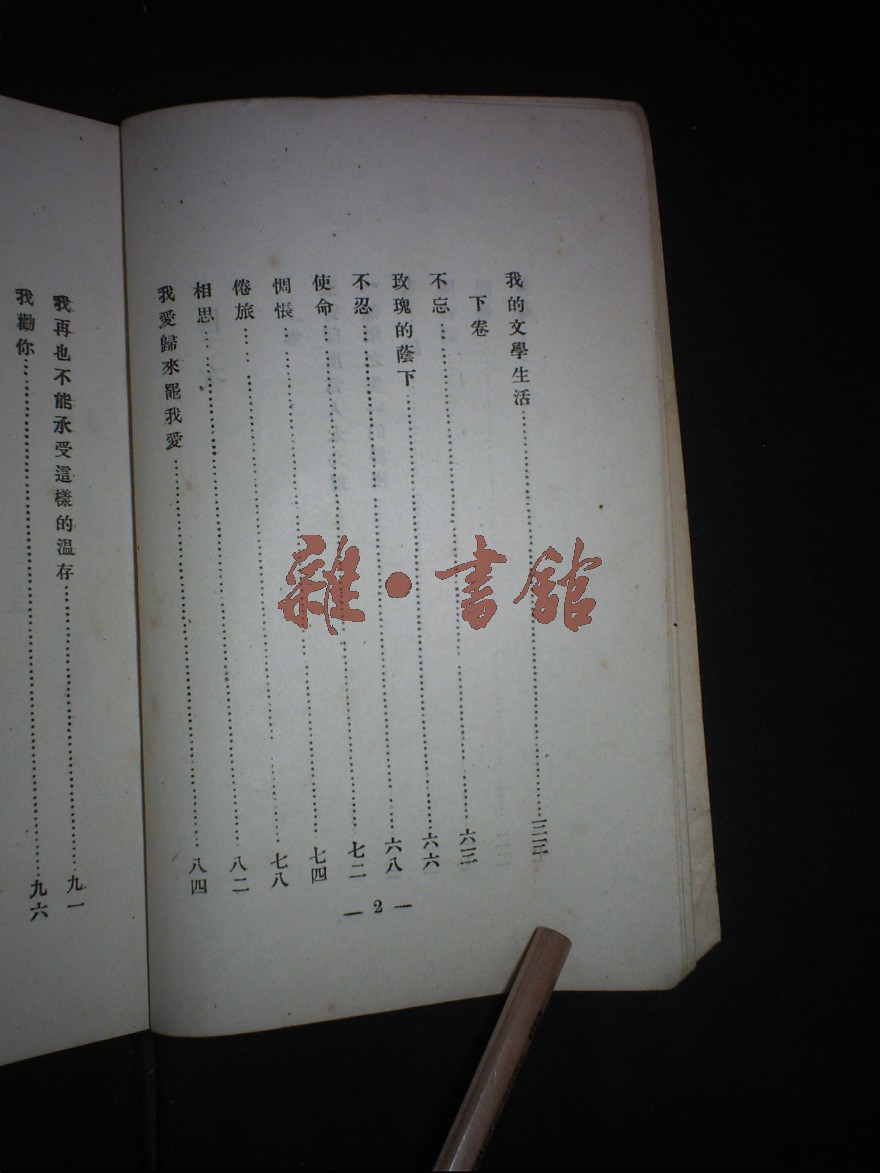 我的文學生活……三三
下卷
不忘……六三
玫瑰的蔭下……六六
不忍……六八
使命……七二
惆悵……七四
倦旅……七八
相思……八二
我愛歸來罷我愛……八四
— 2 —
我再也不能承受這樣的溫存……九一
我勸你……九六
雜·書館